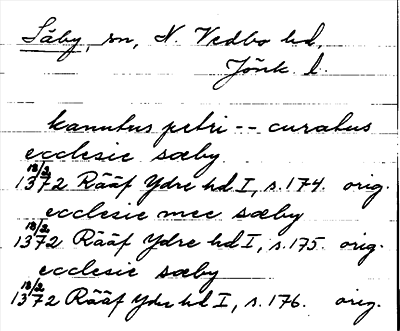 Säby, sn, N. Vedbo hd,
Jönk. l.
kanutus petri -- curatus
ecclesie sæby
18/2 1372 Rääf Ydre hd I, s. 174. orig.
ecclesie mee sæby
18/2 1372 Rääf Ydre hd I, s. 175. orig.
ecclesie sæby
18/2 1372 Rääf Ydre hd I, s. 176. orig.